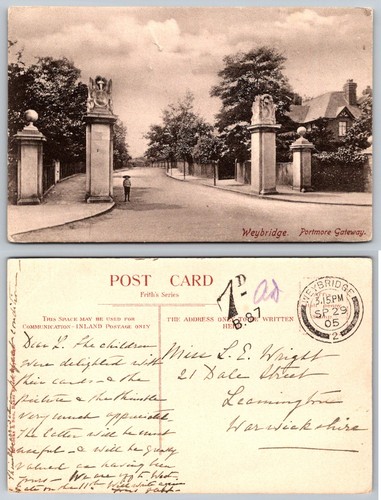 Weybridge. Portmore Gateway.
POST CARD
Frith's Series
THIS SPACE MAY BE USED FOR
COMMUNICATION - INLAND POSTAGE ONLY
THE ADDRESS ONLY TO BE WRITTEN
HERE
1D
B.87
WEYBRIDGE
3.15PM
SP 29
05
2
Dear L. The children
were delighted with
their cards & the
picture & the thimble
very much appreciated
The latter will be most
useful & will be greatly
valued as having been
yours - We are off to
on the 11th Will write again
Miss L. E. Wright
21 Dale Street
Leamington
Warwickshire